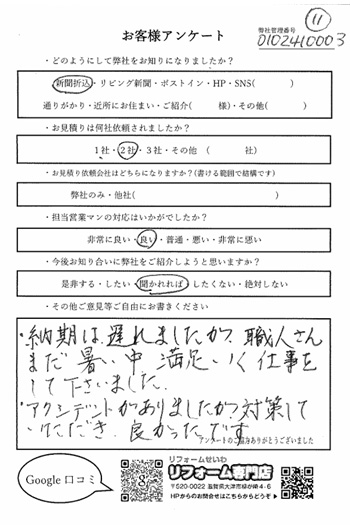 ⑪
お客様アンケート
弊社管理番号
0102410003
・どのようにして弊社をお知りになりましたか？
新聞折込・リビング新聞・ポストイン・HP・SNS(　　　)
通りがかり・近所にお住まい・ご紹介(　　　様)・その他(　　　)
・お見積りは何社依頼されましたか？
1社・2社・3社・その他　(　　　社)
・お見積り依頼会社はどちらになりますか？(書ける範囲で結構です)
弊社のみ・他社(　　　)
・担当営業マンの対応はいかがでしたか？
非常に良い・良い・普通・悪い・非常に悪い
・今後お知り合いに弊社をご紹介しようと思いますか？
是非する・したい・聞かれれば・したくない・絶対しない
・その他ご意見等ご自由にお書きください
・納期は遅れましたが、職人さん
まだ暑い中満足いく仕事を
して下さいました。
・アクシデントがありましたが対策して
いただき、良かったです
アンケートのご協力ありがとうございました
Google 口コミ
リフォームせいわ
リフォーム専門店
〒520-0225 滋賀県大津市緑が丘4-6
HPからのお問合せはこちらからどうぞ